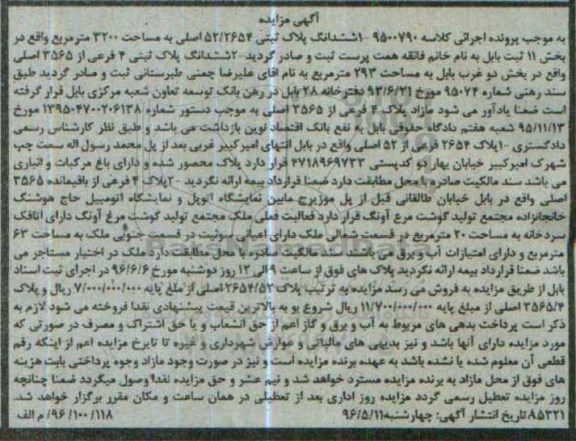 آگهی مزایده
به موجب پرونده اجرائی کلاسه ۹۵۰۰۷۹۰ -۱ششدانگ پلاک ثبتی ۵۲/۲۶۵۴ اصلی به مساحت ۳۲۰۰ مترمربع واقع در
بخش ۱۱ ثبت بابل به نام خانم فائقه همت پرست ثبت و صادر گردید -۲ششدانگ پلاک ثبتی ۴ فرعی از ۳۵۶۵ اصلی
واقع در بخش دو غرب بابل به مساحت ۲۹۳ مترمربع به نام اقای علیرضا چمنی طبرستانی ثبت و صادر گردید طبق
سند رهنی شماره ۹۵۰۷۴ مورخ ۹۳/۶/۲۱ دفترخانه ۲۸ بابل در رهن بانک توسعه تعاون شعبه مرکزی بابل قرار گرفته
است ضمنا یادآور می شود مازاد پلاک ۴ فرعی از ۳۵۶۵ اصلی به موجب دستور شماره ۱۳۹۵۰۴۷۰۰۲۰۶۱۳۸ مورخ
۹۵/۱۱/۱۳ شعبه هفتم دادگاه حقوقی بابل به نفع بانک اقتصاد نوین بازداشت می باشد و طبق نظر کارشناس رسمی
دادگستری -۱پلاک ۲۶۵۴ فرعی از ۵۲ اصلی واقع در بابل انتهای امیرکبیر غربی بعد از پل محمد رسول اله سمت چپ
شهرک امیرکبیر خیابان بهاران کدپستی ۴۷۱۸۹۶۹۷۳۳ قرار دارد پلاک محصور شده و دارای باغ مرکبات و انباری
می باشد سند مالکیت صادره با محل مطابقت دارد ضمنا قرارداد بیمه ارائه نگردید -۲پلاک ۴ فرعی از باقیمانده ۳۵۶۵
اصلی واقع در بابل خیابان طالقانی قبل از پل موزیرج مابین نمایشگاه اتوپل و نمایشگاه اتومبیل حاج هوشنگ
خانجانزاده مجتمع تولید گوشت مرغ آونگ قرار دارد فعالیت فعلی ملک مجتمع تولید گوشت مرغ آونگ دارای اتاقک
سردخانه به مساحت ۲۰ مترمربع در قسمت شمالی ملک دارای اعیانی سوئیت در قسمت جنوبی ملک به مساحت ۶۳
مترمربع و دارای امتیازات آب و برق می باشند سند مالکیت صادره با محل مطابقت دارد ملک در اختیار مستاجر می
باشد ضمنا قرارداد بیمه ارائه نگردید پلاک های فوق از ساعت ۹الی ۱۲ روز دوشنبه مورخ ۹۶/۶/۶ در اجرای ثبت اسناد
بابل از طریق مزایده به فروش می رسد مزایده به ترتیب پلاک ۲۶۵۴/۵۲ اصلی از مبلغ پایه ۷/۰۰۰/۰۰۰/۰۰۰ ریال و پلاک
۳۵۶۵/۴ اصلی از مبلغ پایه ۱۱/۷۰۰/۰۰۰/۰۰۰ ریال شروع و به بالاترین قیمت پیشنهادی نقدا فروخته می شود لازم به
ذکر است پرداخت بدهی های مربوط به آب و برق و گاز اعم از حق انشعاب و یا حق اشتراک و مصرف در صورتی که
مورد مزایده دارای آنها باشد و نیز بدهیهای مالیاتی و عوارض شهرداری و غیره تا تاریخ مزایده اعم از اینکه رقم
قطعی آن معلوم شده یا نشده باشد به عهده برنده مزایده است و نیز در صورت وجود مازاد وجوه پرداختی بابت هزینه
های فوق از محل مازاد به برنده مزایده مسترد خواهد شد و نیم عشر و حق مزایده نقدا وصول میگردد ضمنا چنانچه
روز مزایده تعطیل رسمی گردد مزایده روز اداری بعد از تعطیلی در همان ساعت و مکان مقرر برگزار خواهد شد.
۸۵۳۲۱ تاریخ انتشار آگهی: چهارشنبه ۹۶/۵/۱۱ ۹۶/۱۰۰/۱۱۸ م الف